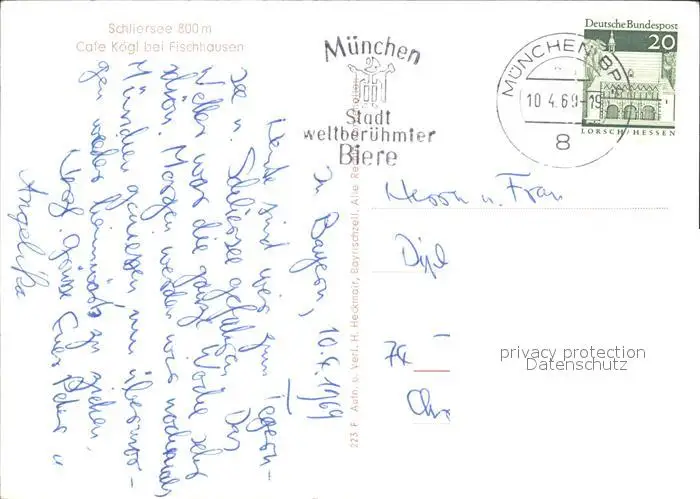 Schliersee 800 m
Cafe Kögl bei Fischhausen
München
Stadt
weltberühmter
Biere
MÜNCHEN BP
10.4.69-19
8
Deutsche Bundespost
20
LORSCH/HESSEN
In Bayern, 10.4.1969
Heute sind wir zum Tegern-
see u. Schliersee gefahren. Das
Wetter war die ganze Woche sehr
schön. Morgen werden wir nochmals
München geniessen um übermor-
gen wieder heimwärts zu ziehen.
Herzl. Grüsse Euer Peter u
Angelika
223 F Aufn. u. Verl. H. Heckmair, Bayrischzell. Alle Rechte
Herrn u. Frau
Dipl
74
privacy protection
Datenschutz